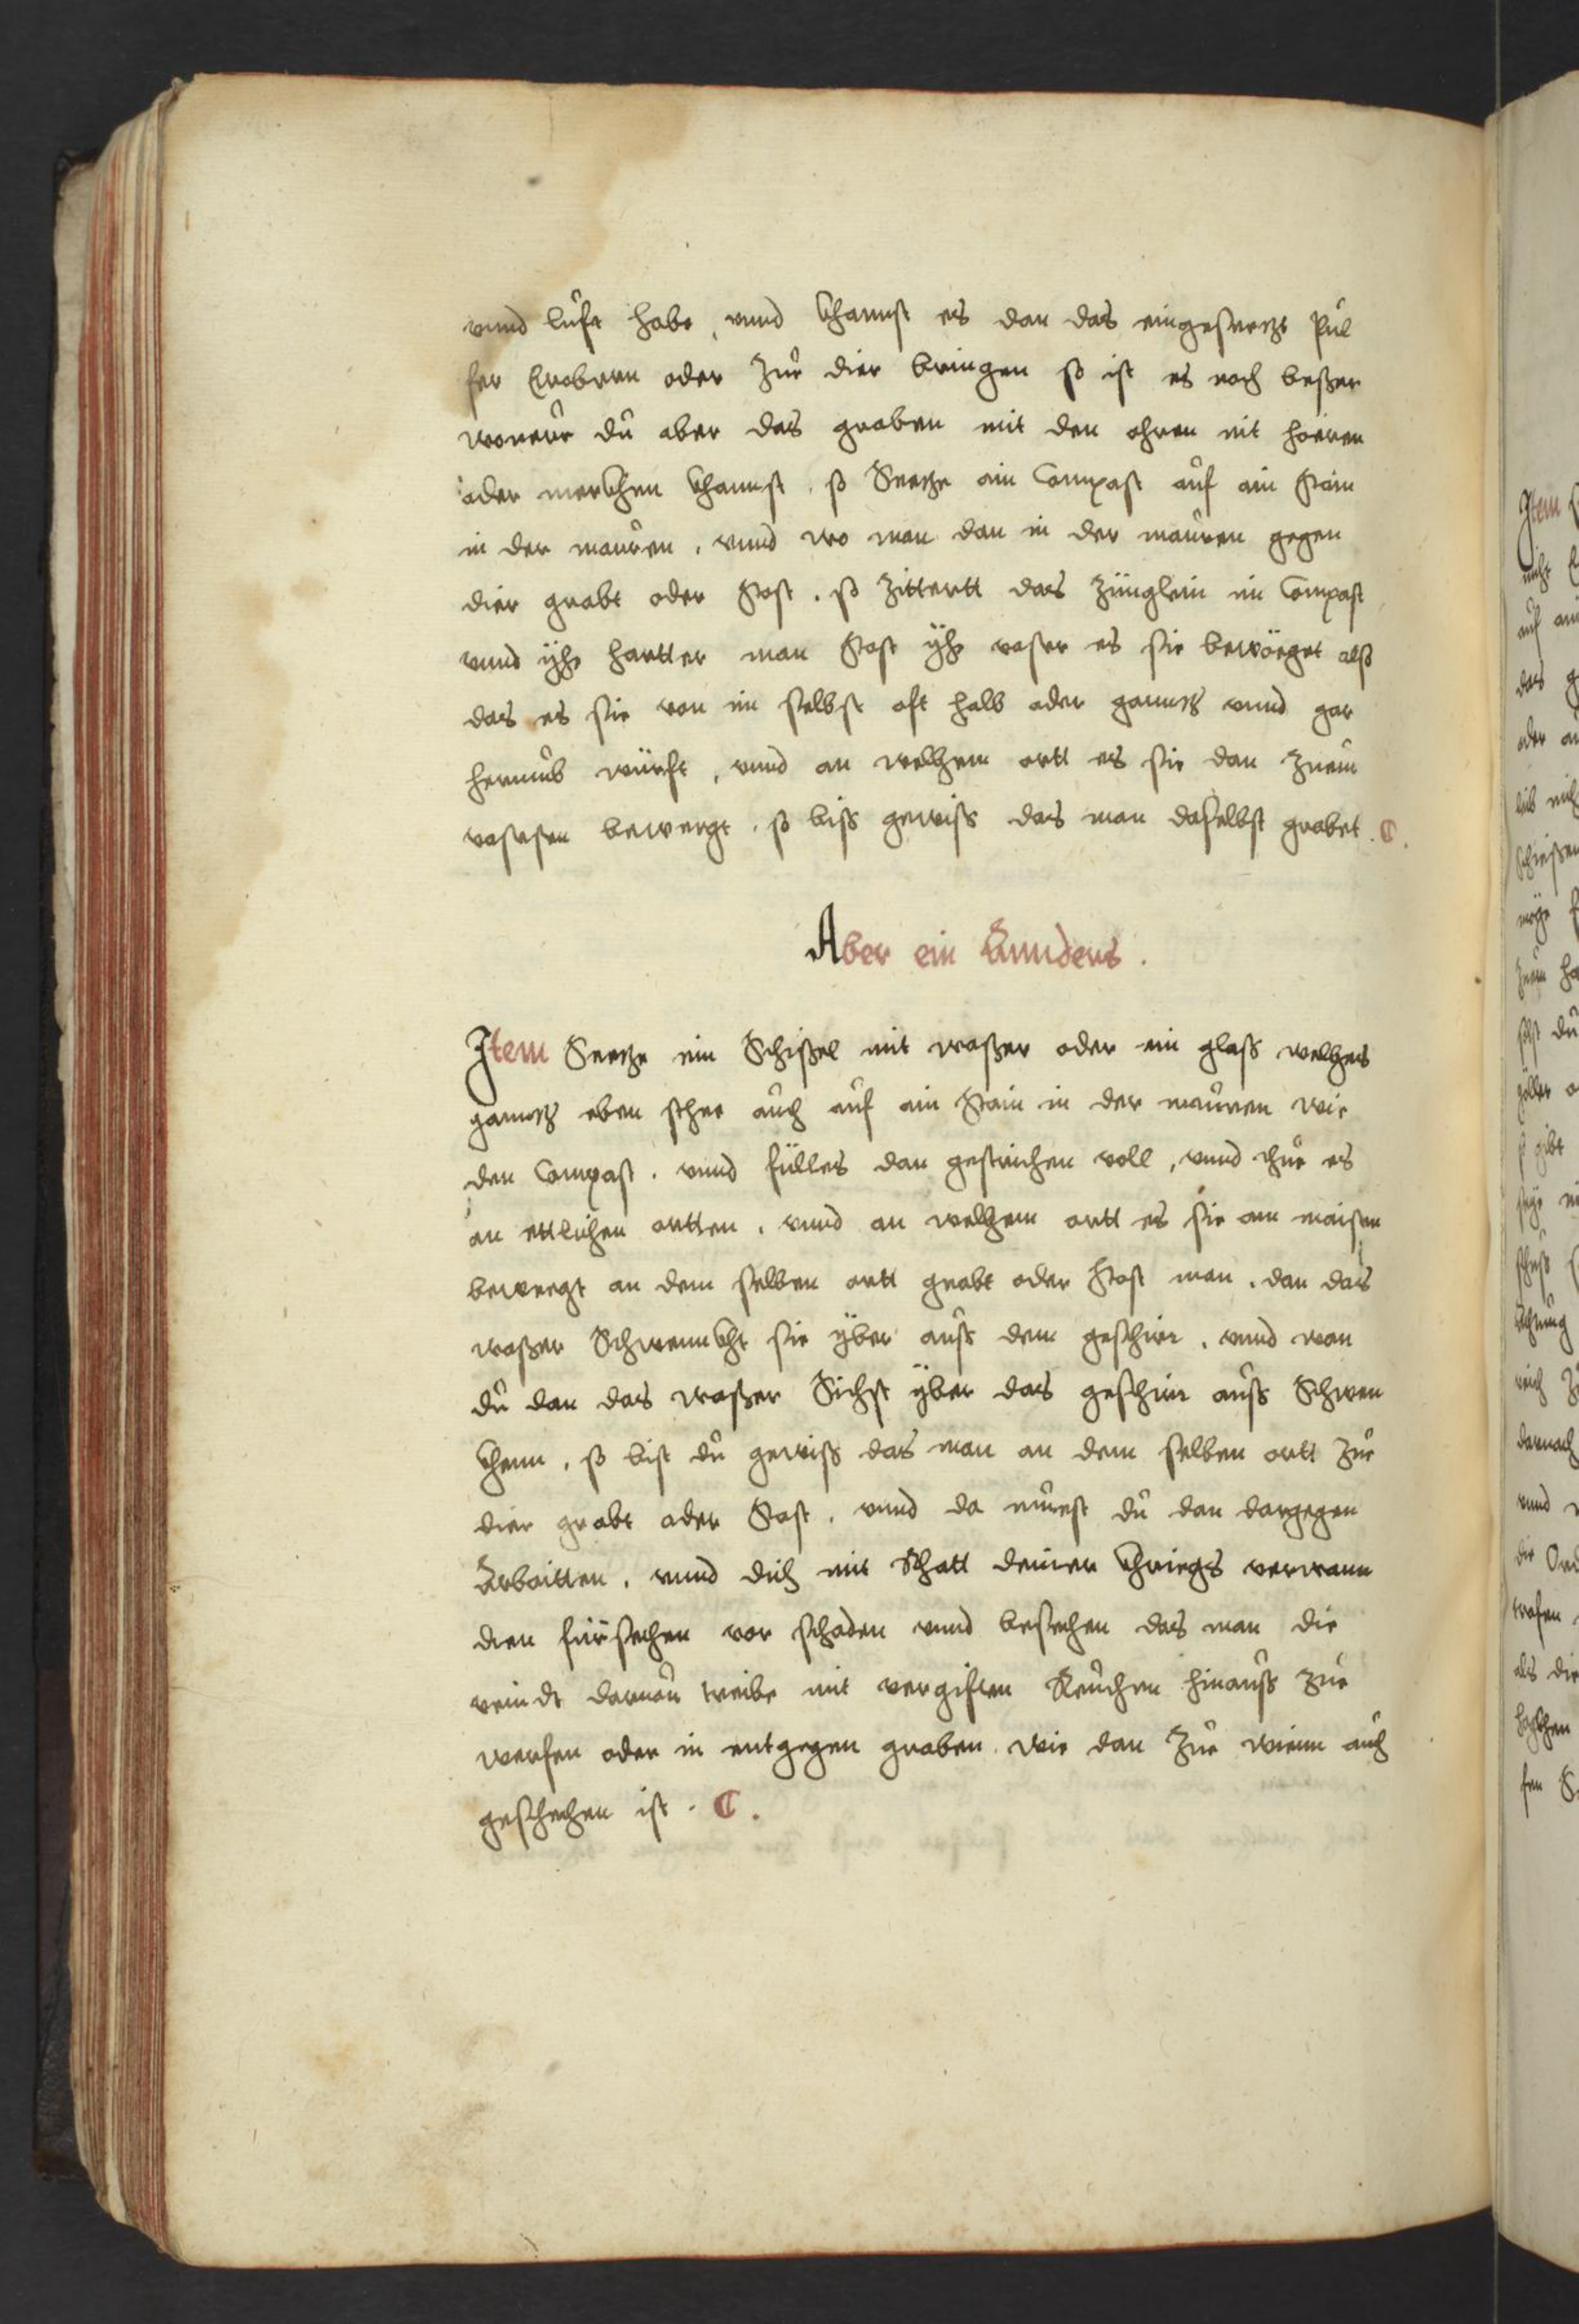 vnnd lufft habe, vnnd khannst es dan das eingesetzte Pul
fer Erobern oder zue dier bringen so ist es noch beßer
du aber das graben mit den ohren nit hören
oder merckhen khannst, so Seetze ain Compast auf ain Stain
in der mauren, vnnd wo man dan in der mauren gegen
dier grabt oder Stost, so zittertt das zünglein im Compast
vnnd yhe hartter man Stost yhe vaster es sie bewöeget alß
das es sie von im selbst oft halb oder ganntz vnnd gar
herumb würft, vnnd an welhem ortt es sie dan zuem
vastesten beweegt, so biss gewiss das man daselbst grabet.
Aber ein Annders.
Item Seetze ein Schißel mit waßer oder ein glaß welhes
ganntz eben sthee auch auf ain Stain in der mauren wie
den Compast, vnnd fülles dan gestrichen voll, vnnd thue es
an ettlichen ortten, vnnd an welhem ortt es sie am maisten
beweegt an dem selben ortt grabt oder Stost man, dan das
waßer Schwennckht sie yber auß dem geschirr, vnnd wan
du dan das waßer Sichst yber das geschirr auß Schwen
khenn, so bist du gewiß das man an dem selben ortt zue
dier grabt oder Stost, vnnd da muest du dan dargegen
Arbaitten, vnnd dich mit Rhatt deiner khriegs verwann
dten fürsechen vor schaden vnnd besechen das man die
veindt daruon treibe mit vergiften Reuchen hinauß zue
werfen oder in entgegen graben wie dan zue wienn auch
geschechen ist.